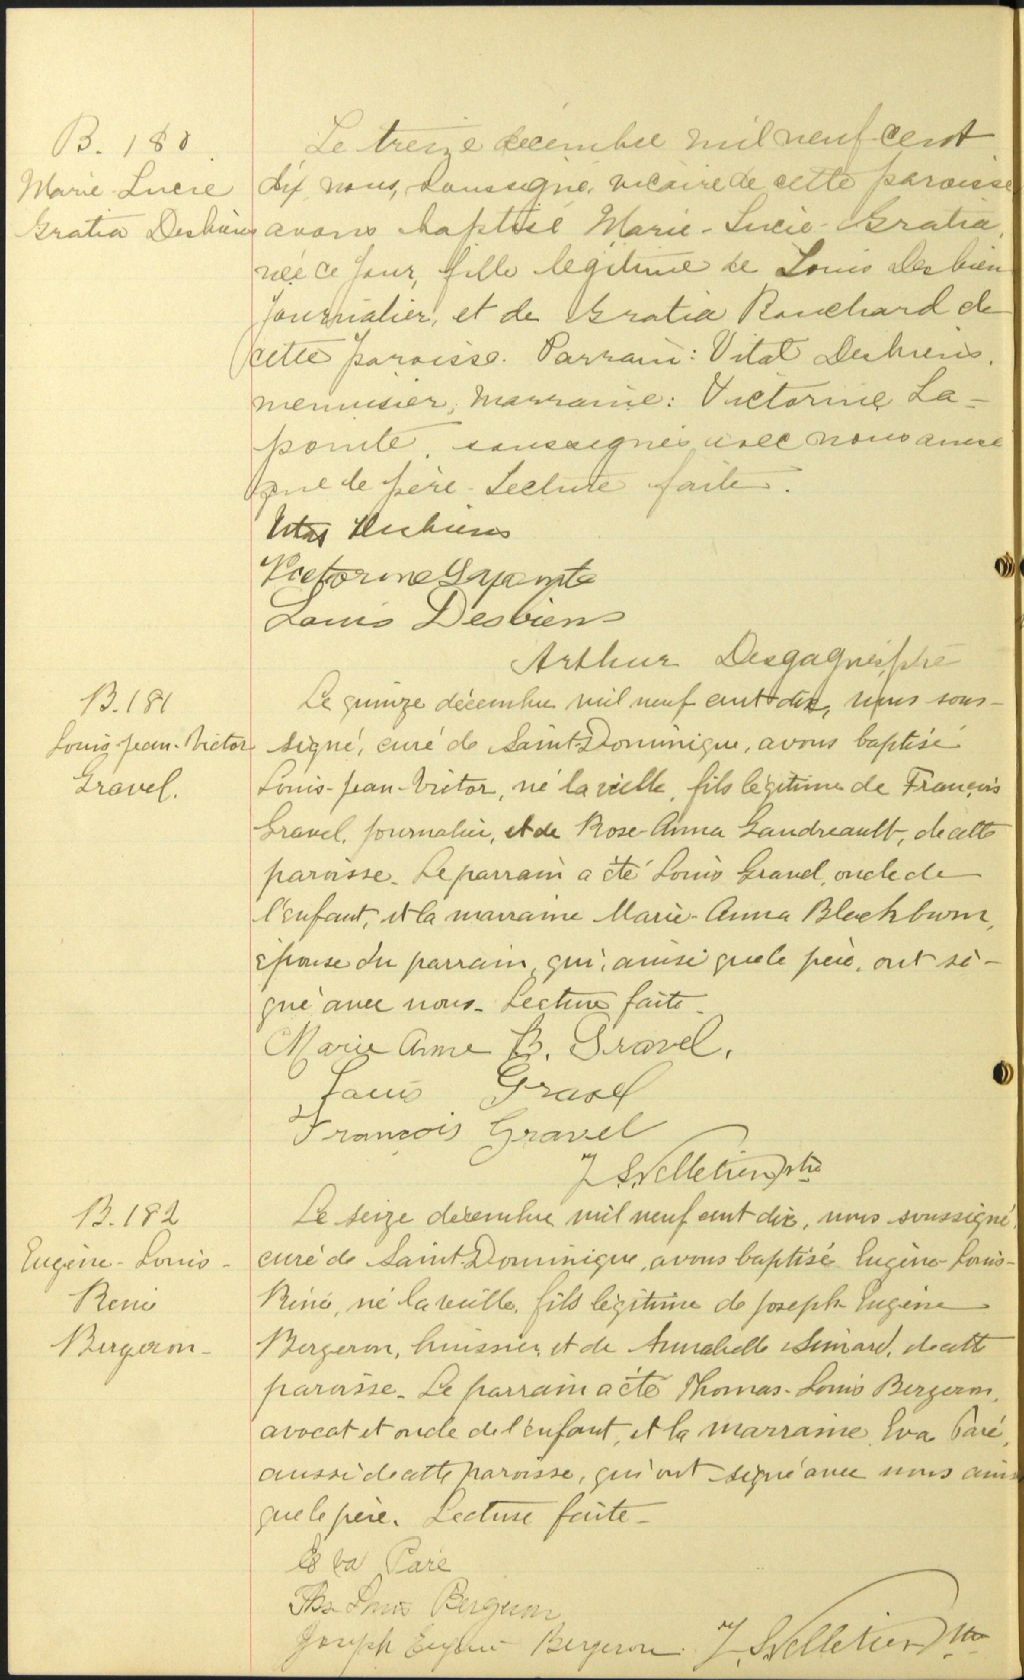 B. 180
Marie-Lucie
Gratia Desbiens
Le treize décembre mil neuf-cent
dix nous, soussigné, vicaire de cette paroisse
avons baptisé Marie-Lucie-Gratia,
née ce jour, fille légitime de Louis Desbiens
journalier, et de Gratia Bouchard de
cette paroisse. Parrain: Vital Desbiens,
menuisier, Marraine: Victorine La-
pointe, soussignés avec nous ainsi
que le père. Lecture faite.
Vital Desbiens
Victorine Lapointe
Louis Desbiens
Arthur Desgagnés, ptre
B. 181
Louis-Jean-Victor
Gravel.
Le quinze décembre mil neuf cent dix, nous sous-
signé, curé de Saint-Dominique, avons baptisé
Louis-Jean-Victor, né la veille, fils légitime de François
Gravel, journalier, et de Rose-Anna Gaudreault, de cette
paroisse. Le parrain a été Louis Gravel, oncle de
l'enfant, et la marraine Marie-Anna Blackburn,
épouse du parrain, qui, ainsi que le père, ont si-
gné avec nous. Lecture faite.
Marie Anne B. Gravel.
Louis Gravel
François Gravel
J. S. Pelletier ptre
B. 182
Eugène-Louis-
René
Bergeron-
Le seize décembre mil neuf cent dix, nous soussigné,
curé de Saint-Dominique, avons baptisé Eugène-Louis-
René, né la veille, fils légitime de Joseph Eugène
Bergeron, huissier, et de Annabelle Simard, de cette
paroisse. Le parrain a été Thomas-Louis Bergeron,
avocat et oncle de l'enfant, et la marraine Eva Paré,
aussi de cette paroisse, qui ont signé avec nous ainsi
que le père. Lecture faite-
Eva Paré
Ths Louis Bergeron
Joseph Eugène Bergeron J. S. Pelletier Ptre